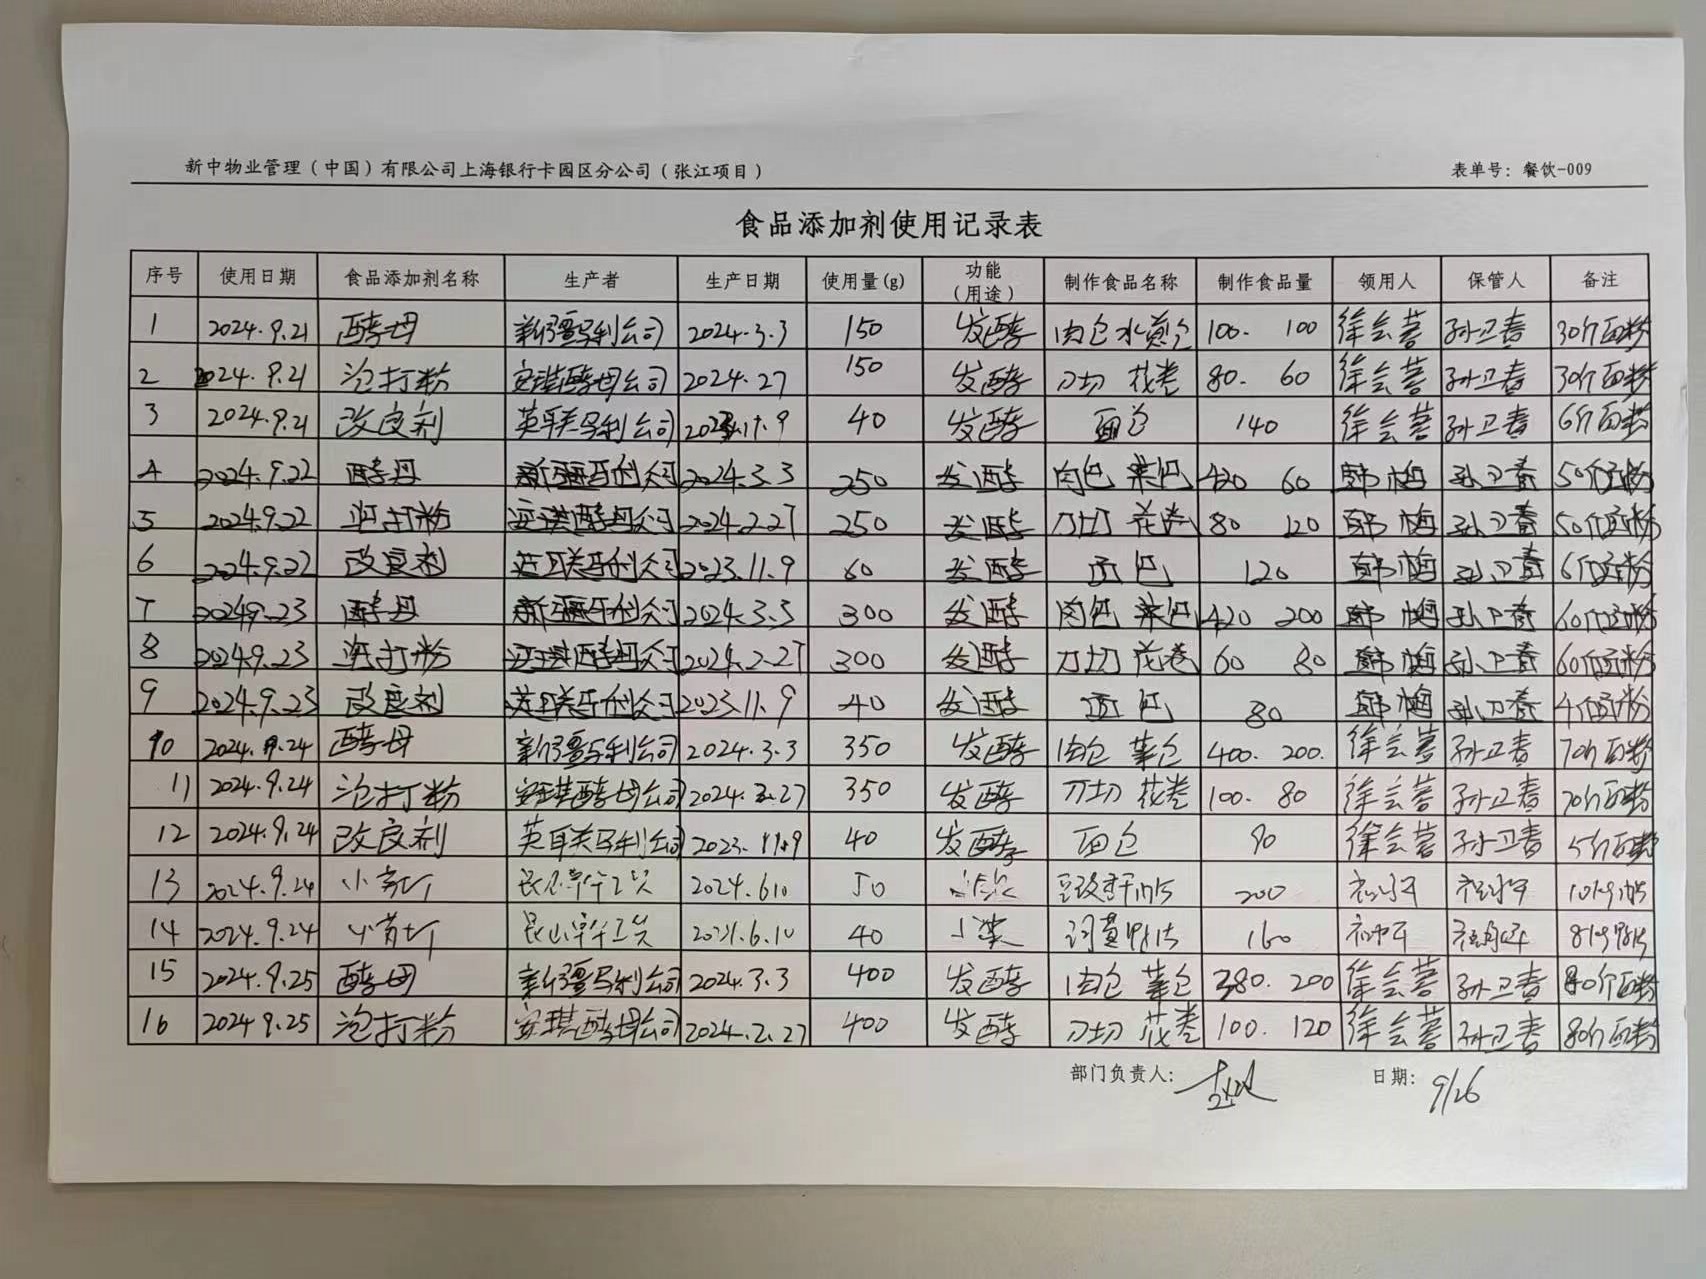 新中物业管理（中国）有限公司上海银行卡园区分公司（张江项目） 表单号：餐饮-009
食品添加剂使用记录表
序号 使用日期 食品添加剂名称 生产者 生产日期 使用量(g) 功能（用途） 制作食品名称 制作食品量 领用人 保管人 备注
1 2024.9.21 酵母 新疆马利公司 2024.3.3 150 发酵 肉包 100. 100 徐会蓉 孙卫春 30斤面粉
2 2024.9.21 泡打粉 安琪酵母公司 2024.27 150 发酵 刀切 花卷 80. 60 徐会蓉 孙卫春 30斤面粉
3 2024.9.21 改良剂 英联马利公司 2023.11.9 40 发酵 面包 140 徐会蓉 孙卫春 6斤面粉
4 2024.9.22 酵母 新疆马利公司 2024.3.3 250 发酵 肉包 菜包 420 60 韩梅 孙卫春 50斤面粉
5 2024.9.22 泡打粉 安琪酵母公司 2024.2.27 250 发酵 刀切 花卷 80 120 韩梅 孙卫春 50斤面粉
6 2024.9.22 改良剂 英联马利公司 2023.11.9 60 发酵 面包 120 韩梅 孙卫春 6斤面粉
7 2024.9.23 酵母 新疆马利公司 2024.3.3 300 发酵 肉包 菜包 420 200 韩梅 孙卫春 60斤面粉
8 2024.9.23 泡打粉 安琪酵母公司 2024.2.27 300 发酵 刀切 花卷 60 80 韩梅 孙卫春 60斤面粉
9 2024.9.23 改良剂 英联马利公司 2023.11.9 40 发酵 面包 80 韩梅 孙卫春 4斤面粉
10 2024.9.24 酵母 新疆马利公司 2024.3.3 350 发酵 肉包 菜包 400. 200. 徐会蓉 孙卫春 70斤面粉
11 2024.9.24 泡打粉 安琪酵母公司 2024.2.27 350 发酵 刀切 花卷 100. 80 徐会蓉 孙卫春 70斤面粉
12 2024.9.24 改良剂 英联马利公司 2023.11.9 40 发酵 面包 90 徐会蓉 孙卫春 5斤面粉
13 2024.9.24 小苏打 2024.6.10 50 200
14 2024.9.24 小苏打 40 160
15 2024.9.25 酵母 新疆马利公司 2024.3.3 400 发酵 肉包 菜包 380. 200 徐会蓉 孙卫春 80斤面粉
16 2024.9.25 泡打粉 安琪酵母公司 2024.2.27 400 发酵 刀切 花卷 100. 120 徐会蓉 孙卫春 80斤面粉
部门负责人： 日期： 9/26